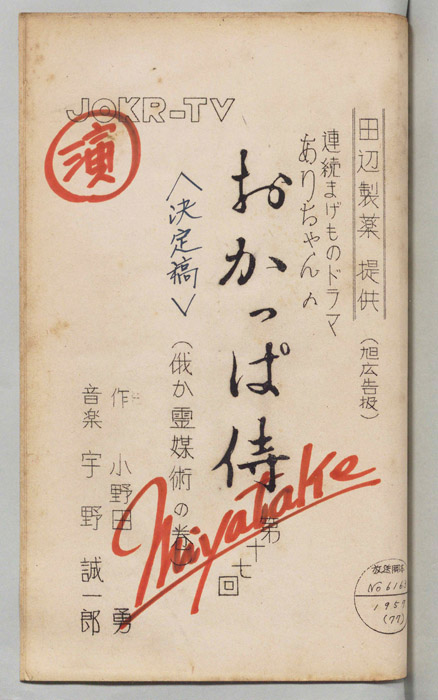 JOKR-TV
演
田辺製薬 提供
(旭広告扱)
連続まげものドラマ
ありちゃんの
おかっぱ侍
第十七回
<決定稿>
(俄か霊媒術の巻)
作 小野田 勇
音楽 宇野誠一郎
Miyatake
No 616
195
(77)